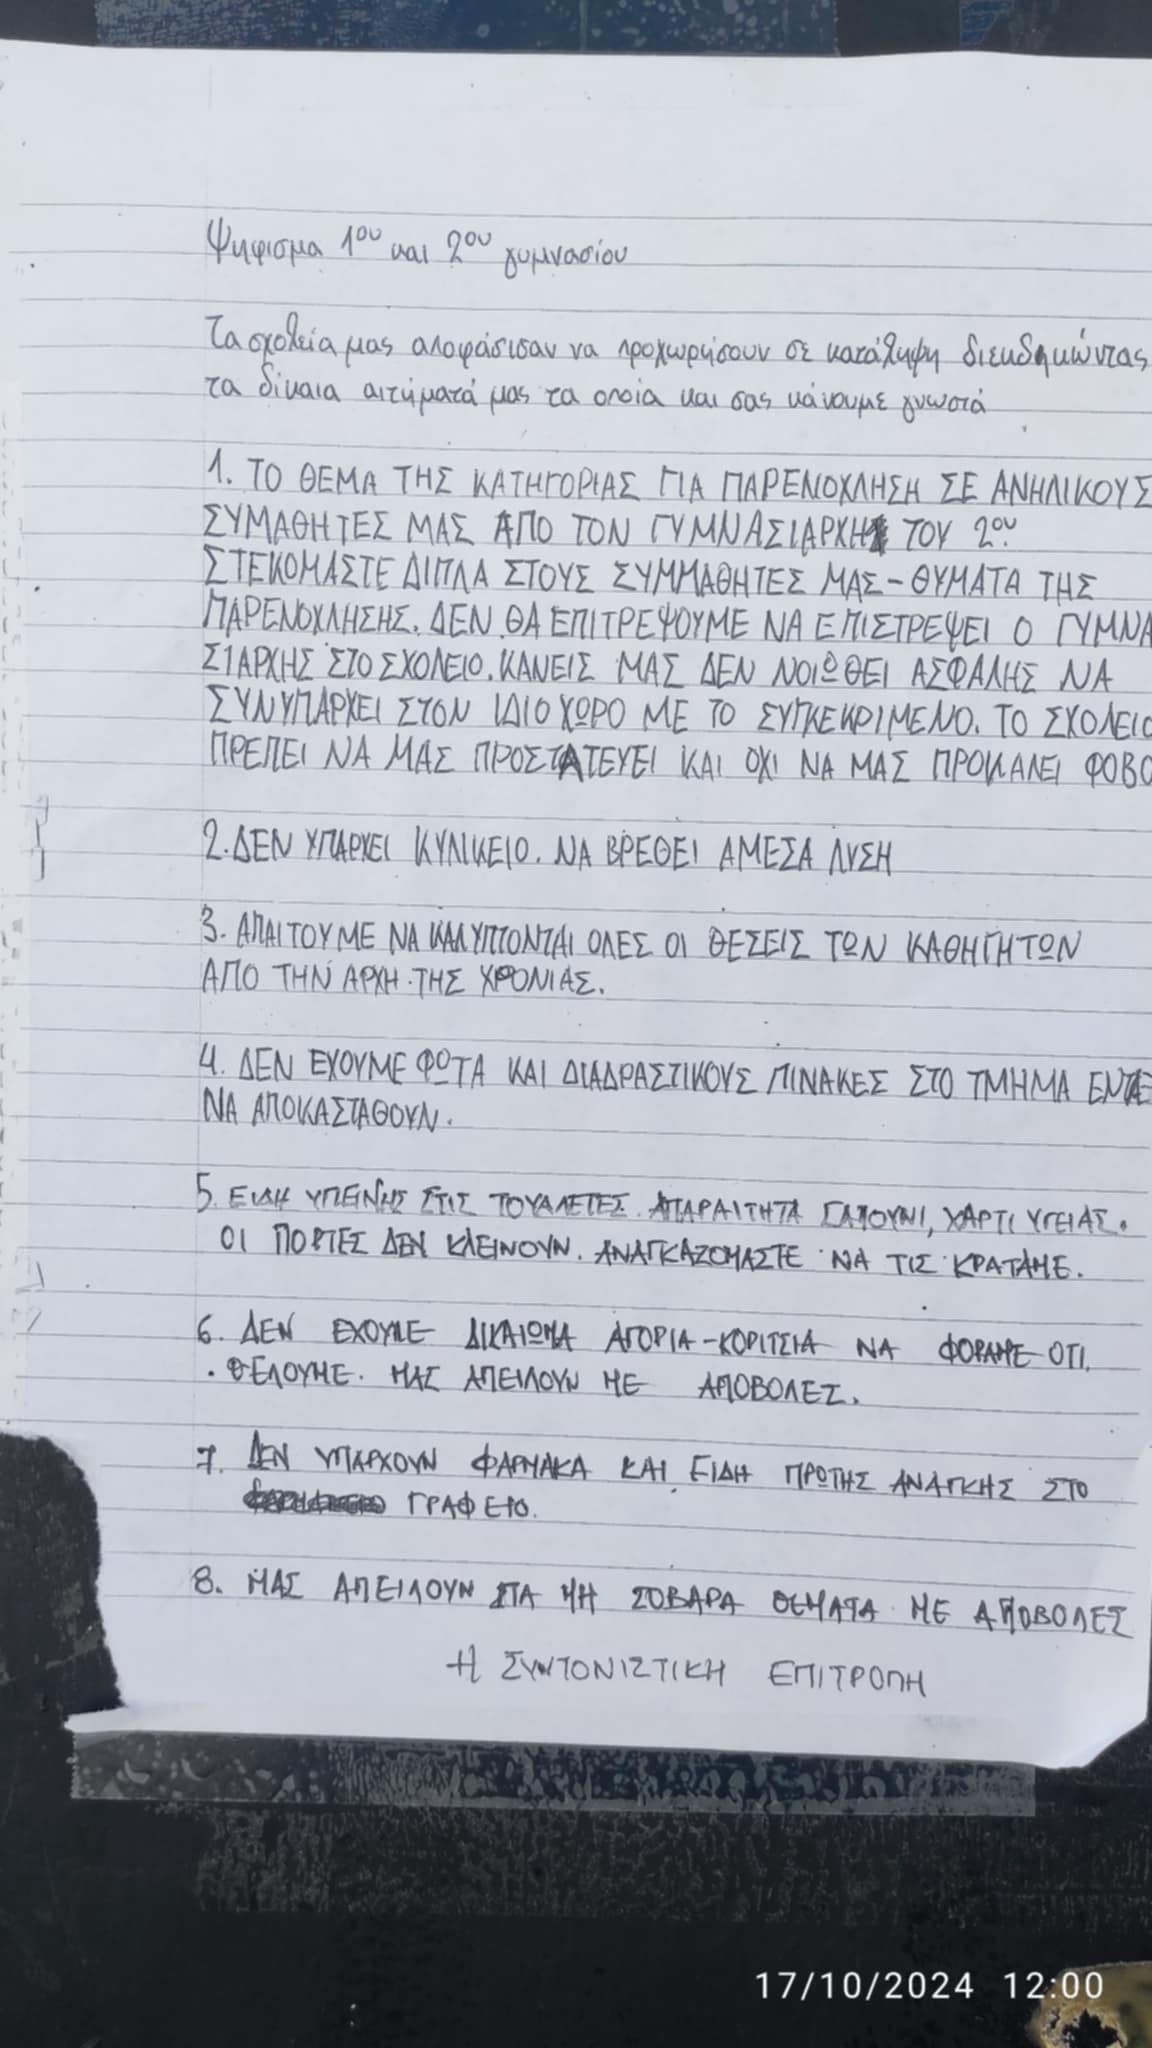 Ψήφισμα 1ου και 2ου γυμνασίου
Τα σχολεία μας αποφάσισαν να προχωρήσουν σε κατάληψη διεκδηκώντας
τα δίκαια αιτήματά μας τα οποία και σας κάνουμε γνωστά
1. ΤΟ ΘΕΜΑ ΤΗΣ ΚΑΤΗΓΟΡΙΑΣ ΓΙΑ ΠΑΡΕΝΟΧΛΗΣΗ ΣΕ ΑΝΗΛΙΚΟΥΣ
ΣΥΜΑΘΗΤΕΣ ΜΑΣ ΑΠΟ ΤΟΝ ΓΥΜΝΑΣΙΑΡΧΗ ΤΟΥ 2ου.
ΣΤΕΚΟΜΑΣΤΕ ΔΙΠΛΑ ΣΤΟΥΣ ΣΥΜΜΑΘΗΤΕΣ ΜΑΣ - ΘΥΜΑΤΑ ΤΗΣ
ΠΑΡΕΝΟΧΛΗΣΗΣ. ΔΕΝ ΘΑ ΕΠΙΤΡΕΨΟΥΜΕ ΝΑ ΕΠΙΣΤΡΕΨΕΙ Ο ΓΥΜΝΑ
ΣΙΑΡΧΗΣ ΣΤΟ ΣΧΟΛΕΙΟ. ΚΑΝΕΙΣ ΜΑΣ ΔΕΝ ΝΟΙΩΘΕΙ ΑΣΦΑΛΗΣ ΝΑ
ΣΥΝΥΠΑΡΧΕΙ ΣΤΟΝ ΙΔΙΟ ΧΩΡΟ ΜΕ ΤΟ ΣΥΓΚΕΚΡΙΜΕΝΟ. ΤΟ ΣΧΟΛΕΙΟ
ΠΡΕΠΕΙ ΝΑ ΜΑΣ ΠΡΟΣΤΑΤΕΥΕΙ ΚΑΙ ΟΧΙ ΝΑ ΜΑΣ ΠΡΟΚΑΛΕΙ ΦΟΒΟ
2. ΔΕΝ ΥΠΑΡΧΕΙ ΚΥΛΙΚΕΙΟ. ΝΑ ΒΡΕΘΕΙ ΑΜΕΣΑ ΛΥΣΗ
3. ΑΠΑΙΤΟΥΜΕ ΝΑ ΚΑΛΥΠΤΟΝΤΑΙ ΟΛΕΣ ΟΙ ΘΕΣΕΙΣ ΤΩΝ ΚΑΘΗΓΗΤΩΝ
ΑΠΟ ΤΗΝ ΑΡΧΗ ΤΗΣ ΧΡΟΝΙΑΣ.
4. ΔΕΝ ΕΧΟΥΜΕ ΦΩΤΑ ΚΑΙ ΔΙΑΔΡΑΣΤΙΚΟΥΣ ΠΙΝΑΚΕΣ ΣΤΟ ΤΜΗΜΑ ΕΝΤΑΞ
ΝΑ ΑΠΟΚΑΣΤΑΘΟΥΝ.
5. ΕΙΔΗ ΥΓΙΕΙΝΗΣ ΣΤΙΣ ΤΟΥΑΛΕΤΕΣ ΑΠΑΡΑΙΤΗΤΑ ΣΑΠΟΥΝΙ, ΧΑΡΤΙ ΥΓΕΙΑΣ.
ΟΙ ΠΟΡΤΕΣ ΔΕΝ ΚΛΕΙΝΟΥΝ. ΑΝΑΓΚΑΖΟΜΑΣΤΕ ΝΑ ΤΙΣ ΚΡΑΤΑΜΕ.
6. ΔΕΝ ΕΧΟΥΜΕ ΔΙΚΑΙΩΜΑ ΑΓΟΡΙΑ-ΚΟΡΙΤΣΙΑ ΝΑ ΦΟΡΑΜΕ ΟΤΙ
ΘΕΛΟΥΜΕ. ΜΑΣ ΑΠΕΙΛΟΥΝ ΜΕ ΑΠΟΒΟΛΕΣ.
7. ΔΕΝ ΥΠΑΡΧΟΥΝ ΦΑΡΜΑΚΑ ΚΑΙ ΕΙΔΗ ΠΡΩΤΗΣ ΑΝΑΓΚΗΣ ΣΤΟ
ΓΡΑΦΕΙΟ.
8. ΜΑΣ ΑΠΕΙΛΟΥΝ ΓΙΑ ΜΗ ΣΟΒΑΡΑ ΘΕΜΑΤΑ ΜΕ ΑΠΟΒΟΛΕΣ
Η ΣΥΝΤΟΝΙΣΤΙΚΗ ΕΠΙΤΡΟΠΗ
17/10/2024 12:00